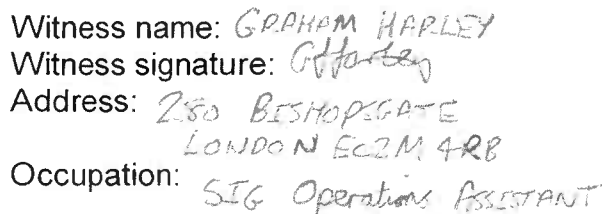 Witness name: GRAHAM HARLEY
Witness signature: GHarley
Address: 280 BISHOPSGATE
LONDON EC2M 4RB
Occupation: SIG Operations ASSISTANT